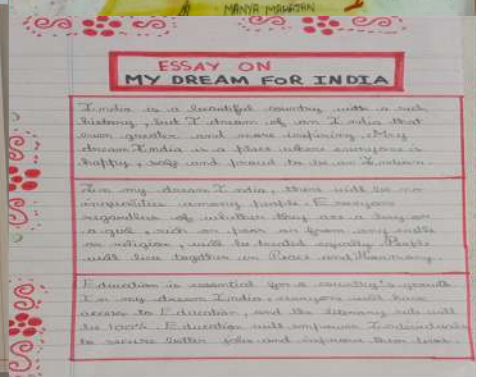 MANYA MAHAJAN
ESSAY ON
MY DREAM FOR INDIA
India is a beautiful country with a rich
history, but I dream of an India that
even greater and more inspiring. My
dream India is a place where everyone is
happy, safe and proud to be an Indian.
In my dream India, there will be no
inequalities among people. Everyone
regardless of whether they are a boy or
a girl, rich or poor or from any caste
or religion, will be treated equally. People
will live together in Peace and Harmony.
Education is essential for a country's growth
In my dream India, everyone will have
access to Education, and the literacy rate will
be 100%. Education will empower Individuals
to secure better jobs and improve their lives.